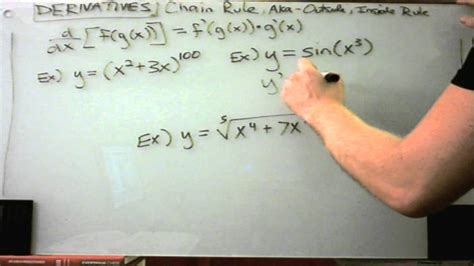 DERIVATIVES: Chain Rule, Aka-Outside, Inside Rule
d/dx [f(g(x))] = f'(g(x))·g'(x)
Ex) y = (x² + 3x)¹⁰⁰
Ex) y = sin(x³)
y'
Ex) y = ⁵√(x⁴ + 7x)